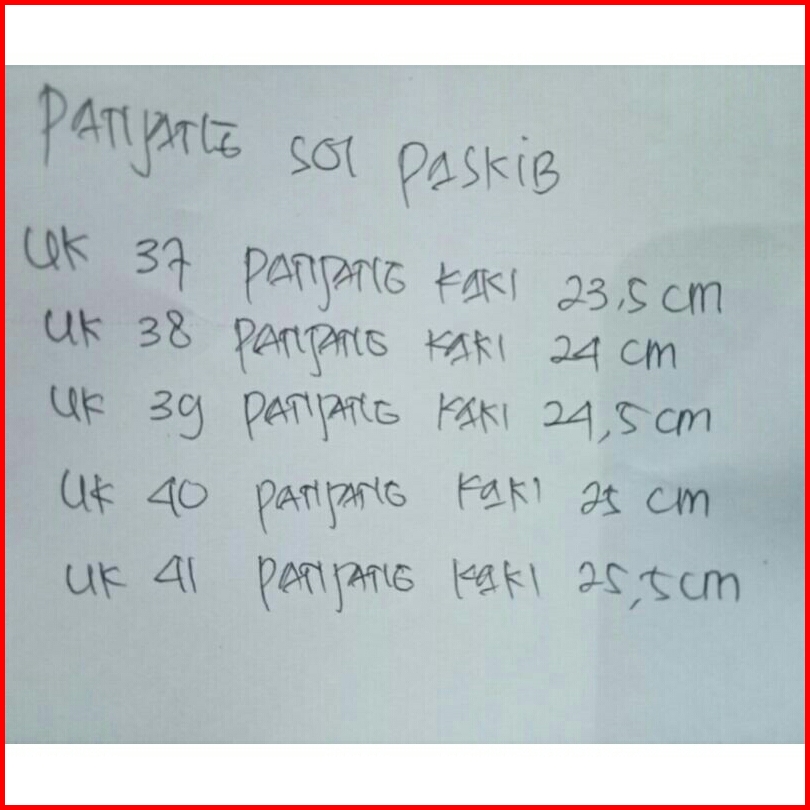 PANJANG SOL PASKIB
UK 37 PANJANG KAKI 23,5 cm
UK 38 PANJANG KAKI 24 cm
UK 39 PANJANG KAKI 24,5 cm
UK 40 PANJANG KAKI 25 cm
UK 41 PANJANG KAKI 25,5 cm